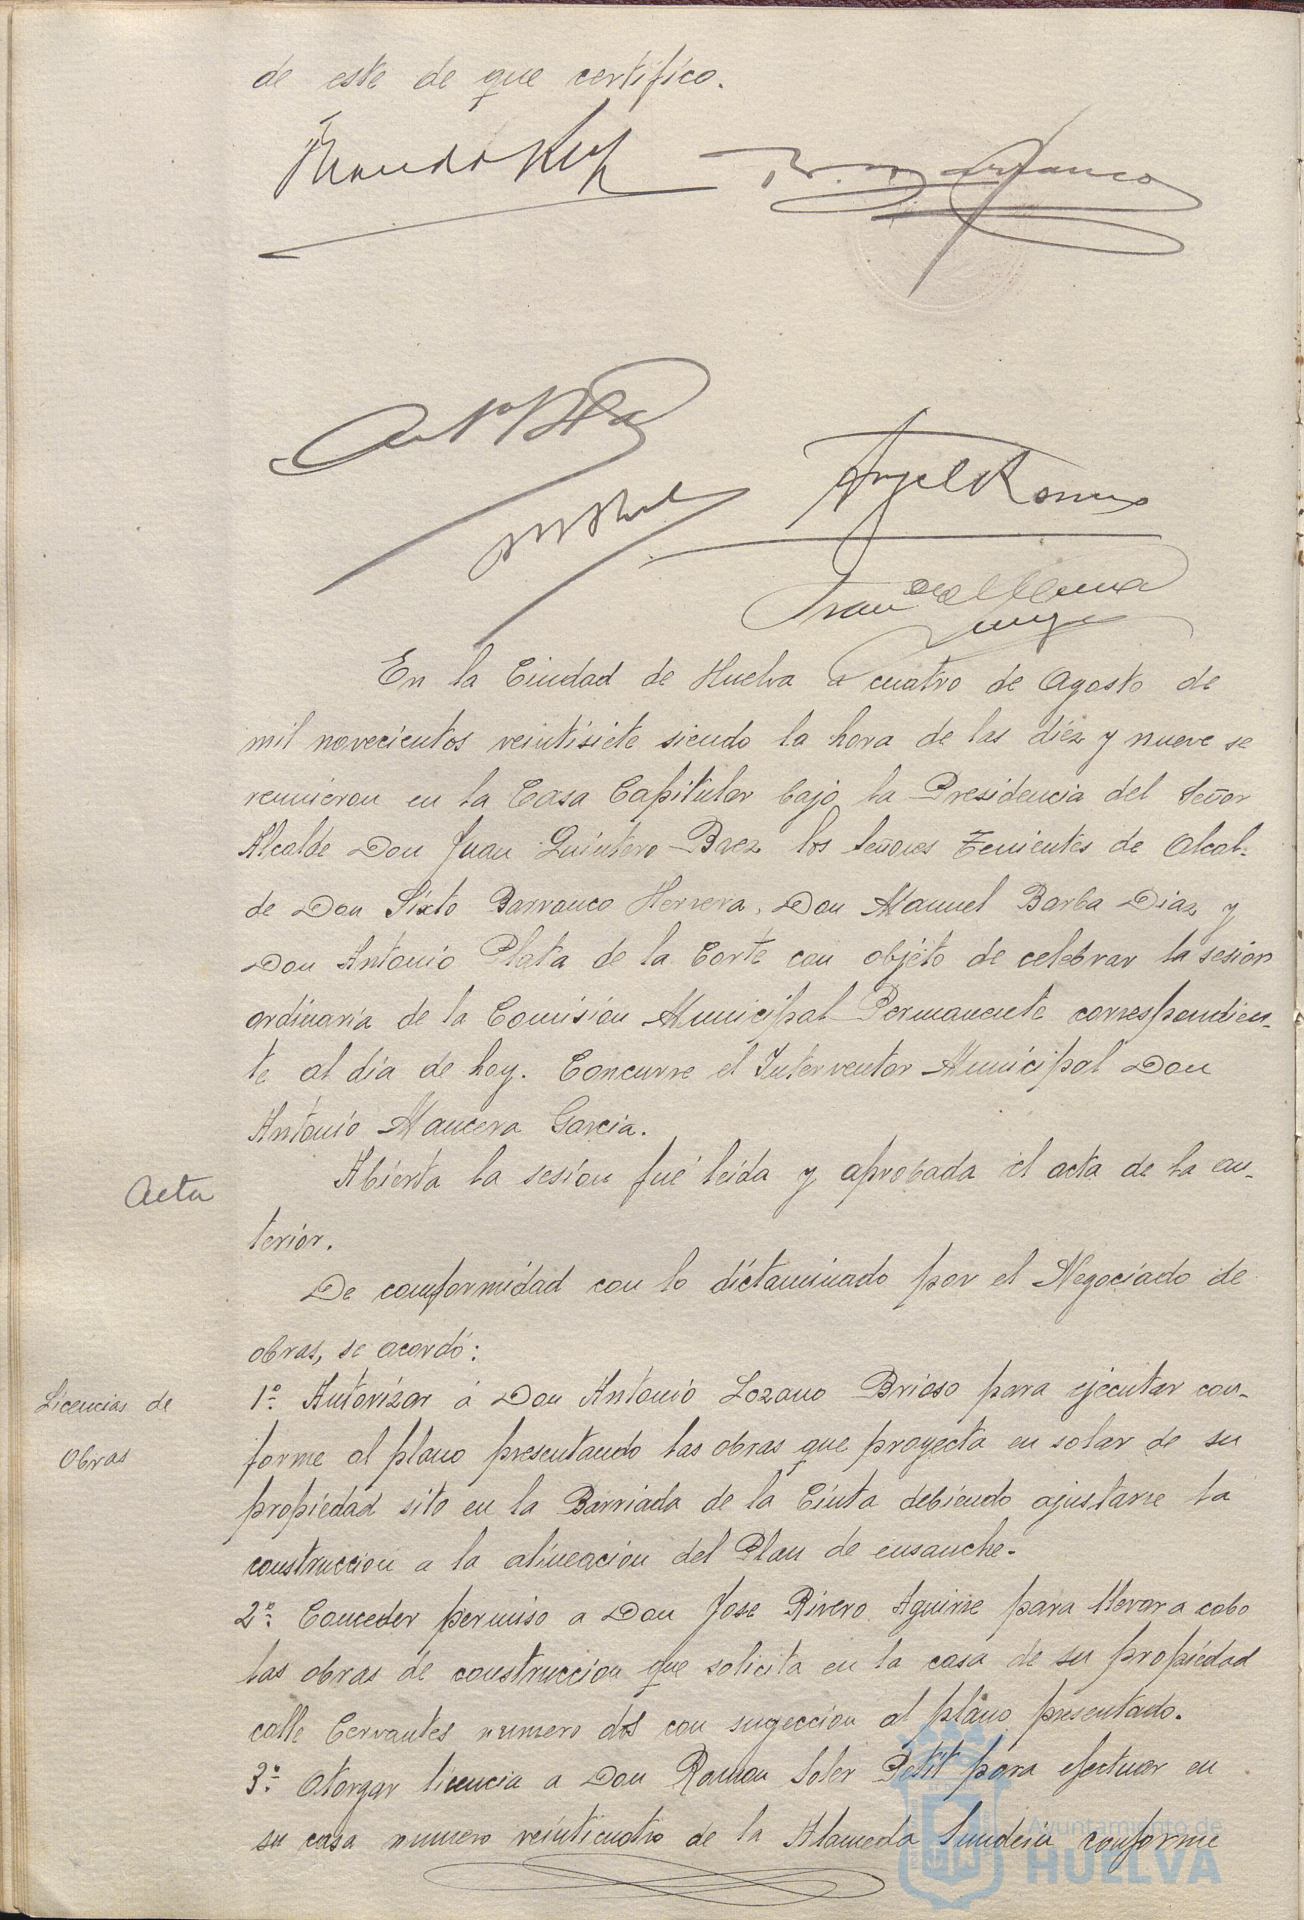 de este de que certifico.
Angel Romero
En la Ciudad de Huelva a cuatro de Agosto de
mil novecientos veintisiete siendo la hora de las diez y nueve se
reunieron en la Casa Capitular bajo la Presidencia del Señor
Alcalde Don Juan Quintero Baez los señores Tenientes de Alcal-
de Don Sixto Barranco Herrera, Don Manuel Barba Diaz y
Don Antonio Plata de la Corte con objeto de celebrar la sesión
ordinaria de la Comisión Municipal Permanente correspondien-
te al día de hoy. Concurre el Interventor Municipal Don
Antonio Mancera García.
Acta
Abierta la sesión fué leida y aprobada el acta de la an-
terior.
De conformidad con lo dictaminado por el Negociado de
obras, se acordó:
Licencias de
Obras
1º Autorizar á Don Antonio Lozano Brioso para ejecutar con-
forme al plano presentando las obras que proyecta en solar de su
propiedad sito en la Barriada de la Cinta debiendo ajustarse la
construccion a la alineación del Plan de ensanche.
2º Conceder permiso a Don Jose Rivero Aguirre para llevar a cabo
las obras de construccion que solicita en la casa de su propiedad
calle Cervantes numero dos con sugeccion al plano presentado.
3º Otorgar licencia a Don Ramon Soler Petit para efectuar en
su casa numero veinticuatro de la Alameda Sundein conforme
Ayuntamiento de
HUELVA